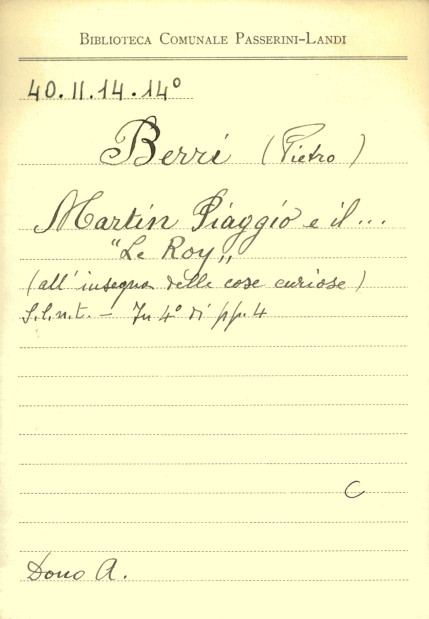 BIBLIOTECA COMUNALE PASSERINI-LANDI
40.II.14.14°
Berri (Pietro)
Martin Piaggio e il...
"Le Roy„
(all'insegna delle cose curiose)
S.l.n.t. - In 4° di pp. 4
C
Dono A.